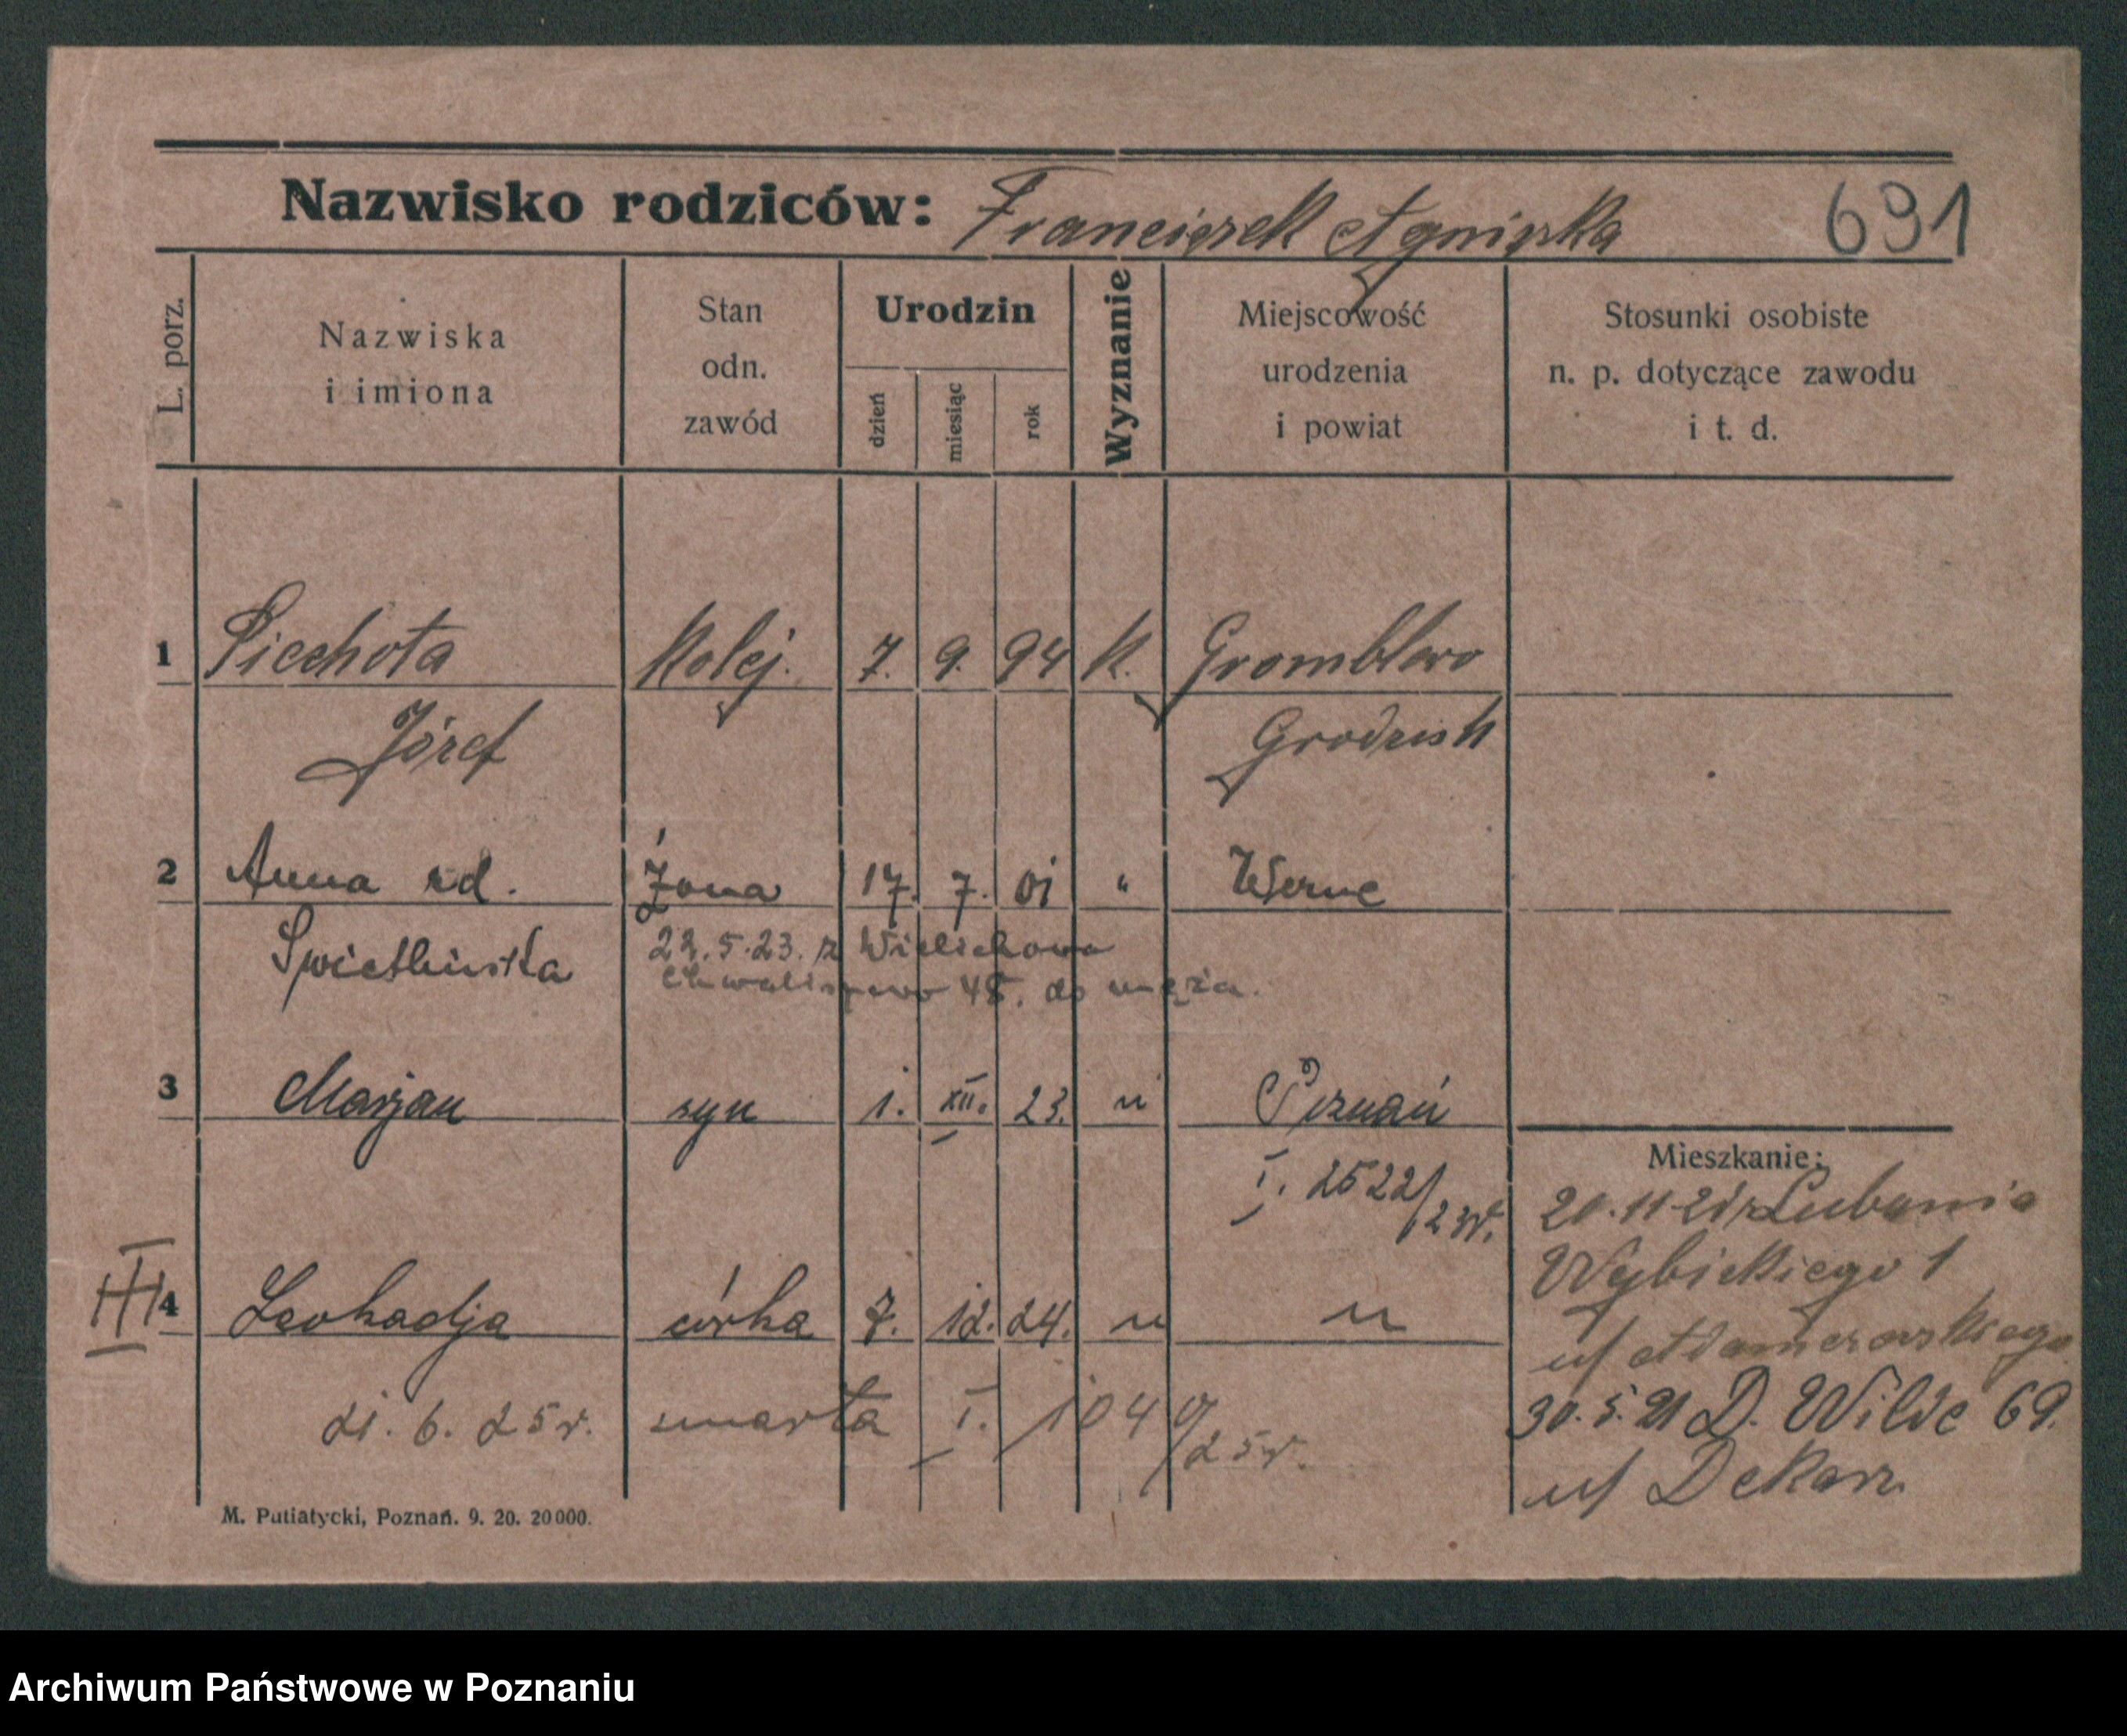 Nazwisko rodziców: Franciszek Agniszka 691
L. porz.
Nazwiska
i imiona
Stan
odn.
zawód
Urodzin
dzień
miesiąc
rok
Wyznanie
Miejscowość
urodzenia
i powiat
Stosunki osobiste
n. p. dotyczące zawodu
i t. d.
1 Piechota Kolej. 7. 9. 94 k. Gromblewo
Józef Grodzisk
2 Anna rd. Żona 17. 7. 01 " Werne
Świetlińska
22.5.23. z Wielichowa
Chwaliszewo 48. do męża.
3 Marjan syn 1. XII. 23. " Poznań
I. 2522/23r.
Mieszkanie:
20.11.21 z Lubonia
Wybickiego 1
u/ Adamczewskiego
III 4 Leokadja córka 7. 12. 24. " "
21. 6. 25r. umarła I. / 1040/25r.
30.5.21 D. Wilde 69.
u/ Dekarz
M. Putiatycki, Poznań. 9. 20. 20000.
Archiwum Państwowe w Poznaniu